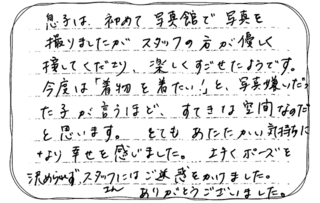 息子は、初めて写真館で写真を
撮りましたが スタッフの方が優しく
接してくださり、楽しくすごせたようです。
今度は「着物を着たい!」と、写真嫌いだっ
た子が言うほど、すてきな空間なのだ
と思います。 とてもあたたかい気持ちに
なり 幸せを感じました。 上手くポーズを
決められず、スタッフさんにはご迷惑をかけました。
ありがとうございました。